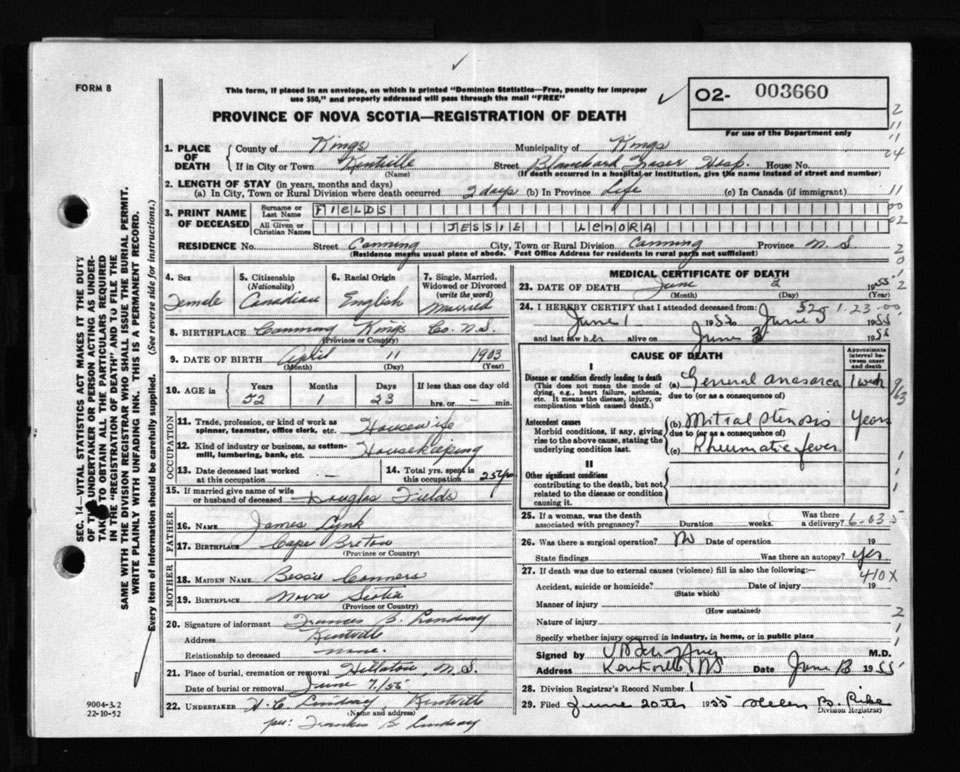 FORM 8
This form, if placed in an envelope, on which is printed "Dominion Statistics—Free, penalty for improper
use $50," and properly addressed will pass through the mail "FREE"
PROVINCE OF NOVA SCOTIA—REGISTRATION OF DEATH
02- 003660
For use of the Department only
1. PLACE OF DEATH
County of Kings Municipality of Kings
If in City or Town Kentville Street Blanchard Fraser Hosp. House No.
(Name) (If death occurred in a hospital or institution, give the name instead of street and number)
2. LENGTH OF STAY (in years, months and days)
(a) In City, Town or Rural Division where death occurred 2 days (b) In Province Life (c) In Canada (if immigrant)
3. PRINT NAME OF DECEASED
Surname or Last Name FIELDS
All Given or Christian Names JESSIE LENORA
RESIDENCE No. Street Canning City, Town or Rural Division Canning Province N.S.
(Residence means usual place of abode. Post Office Address for residents in rural parts not sufficient)
4. Sex Female
5. Citizenship (Nationality) Canadian
6. Racial Origin English
7. Single, Married, Widowed or Divorced (write the word) Married
8. BIRTHPLACE Canning Kings Co. N.S.
(Province or Country)
9. DATE OF BIRTH April 11 1903
(Month) (Day) (Year)
10. AGE in Years Months Days If less than one day old
52 1 23 hrs. or — min.
OCCUPATION
11. Trade, profession, or kind of work as spinner, teamster, office clerk, etc. Housewife
12. Kind of industry or business, as cotton-mill, lumbering, bank, etc. Housekeeping
13. Date deceased last worked at this occupation —
14. Total yrs. spent in this occupation 25 yrs
15. If married give name of wife or husband of deceased Douglas Fields
FATHER
16. NAME James Lynk
17. BIRTHPLACE Cape Breton
(Province or Country)
MOTHER
18. MAIDEN NAME Bessie Conners
19. BIRTHPLACE Nova Scotia
(Province or Country)
20. Signature of informant Frances B. Lindsay
Address Kentville
Relationship to deceased none.
21. Place of burial, cremation or removal N.S.
Date of burial or removal June 7/55
22. UNDERTAKER Lindsay Kentville
(Name and address)
per: B Lindsay
MEDICAL CERTIFICATE OF DEATH
23. DATE OF DEATH June 2 1955
(Month) (Day) (Year)
24. I HEREBY CERTIFY that I attended deceased from:
June 1 1955 to June 1955
and last saw her alive on June 1955
CAUSE OF DEATH
Approximate interval between onset and death
I
Disease or condition directly leading to death
(This does not mean the mode of dying, e.g., heart failure, asthenia, etc. It means the disease, injury, or complication which caused death.)
(a) General anasarca 1 week
due to (or as a consequence of)
Antecedent causes
Morbid conditions, if any, giving rise to the above cause, stating the underlying condition last.
(b) Mitral stenosis Years
due to (or as a consequence of)
(c) Rheumatic fever
II
Other significant conditions
contributing to the death, but not related to the disease or condition causing it.
25. If a woman, was the death associated with pregnancy? Duration weeks Was there a delivery?
26. Was there a surgical operation? No Date of operation 19
State findings Was there an autopsy? Yes
27. If death was due to external causes (violence) fill in also the following:—
410X
Accident, suicide or homicide? Date of injury 19
(State which)
Manner of injury
(How sustained)
Nature of injury
Specify whether injury occurred in industry, in home, or in public place
Signed by M.D.
Address Kentville NS Date June 13 1955
28. Division Registrar's Record Number 1
29. Filed June 20th 1955 Helen B. Pike
Division Registrar
SEC. 14—VITAL STATISTICS ACT MAKES IT THE DUTY
OF THE UNDERTAKER OR PERSON ACTING AS UNDER-
TAKER TO OBTAIN ALL THE PARTICULARS REQUIRED
IN THE "REGISTRATION OF DEATH" AND TO FILE THE
SAME WITH THE DIVISION REGISTRAR WHO SHALL ISSUE THE BURIAL PERMIT.
WRITE PLAINLY WITH UNFADING INK. THIS IS A PERMANENT RECORD.
Every item of information should be carefully supplied. (See reverse side for instructions.)
9004-3.2
22-10-52